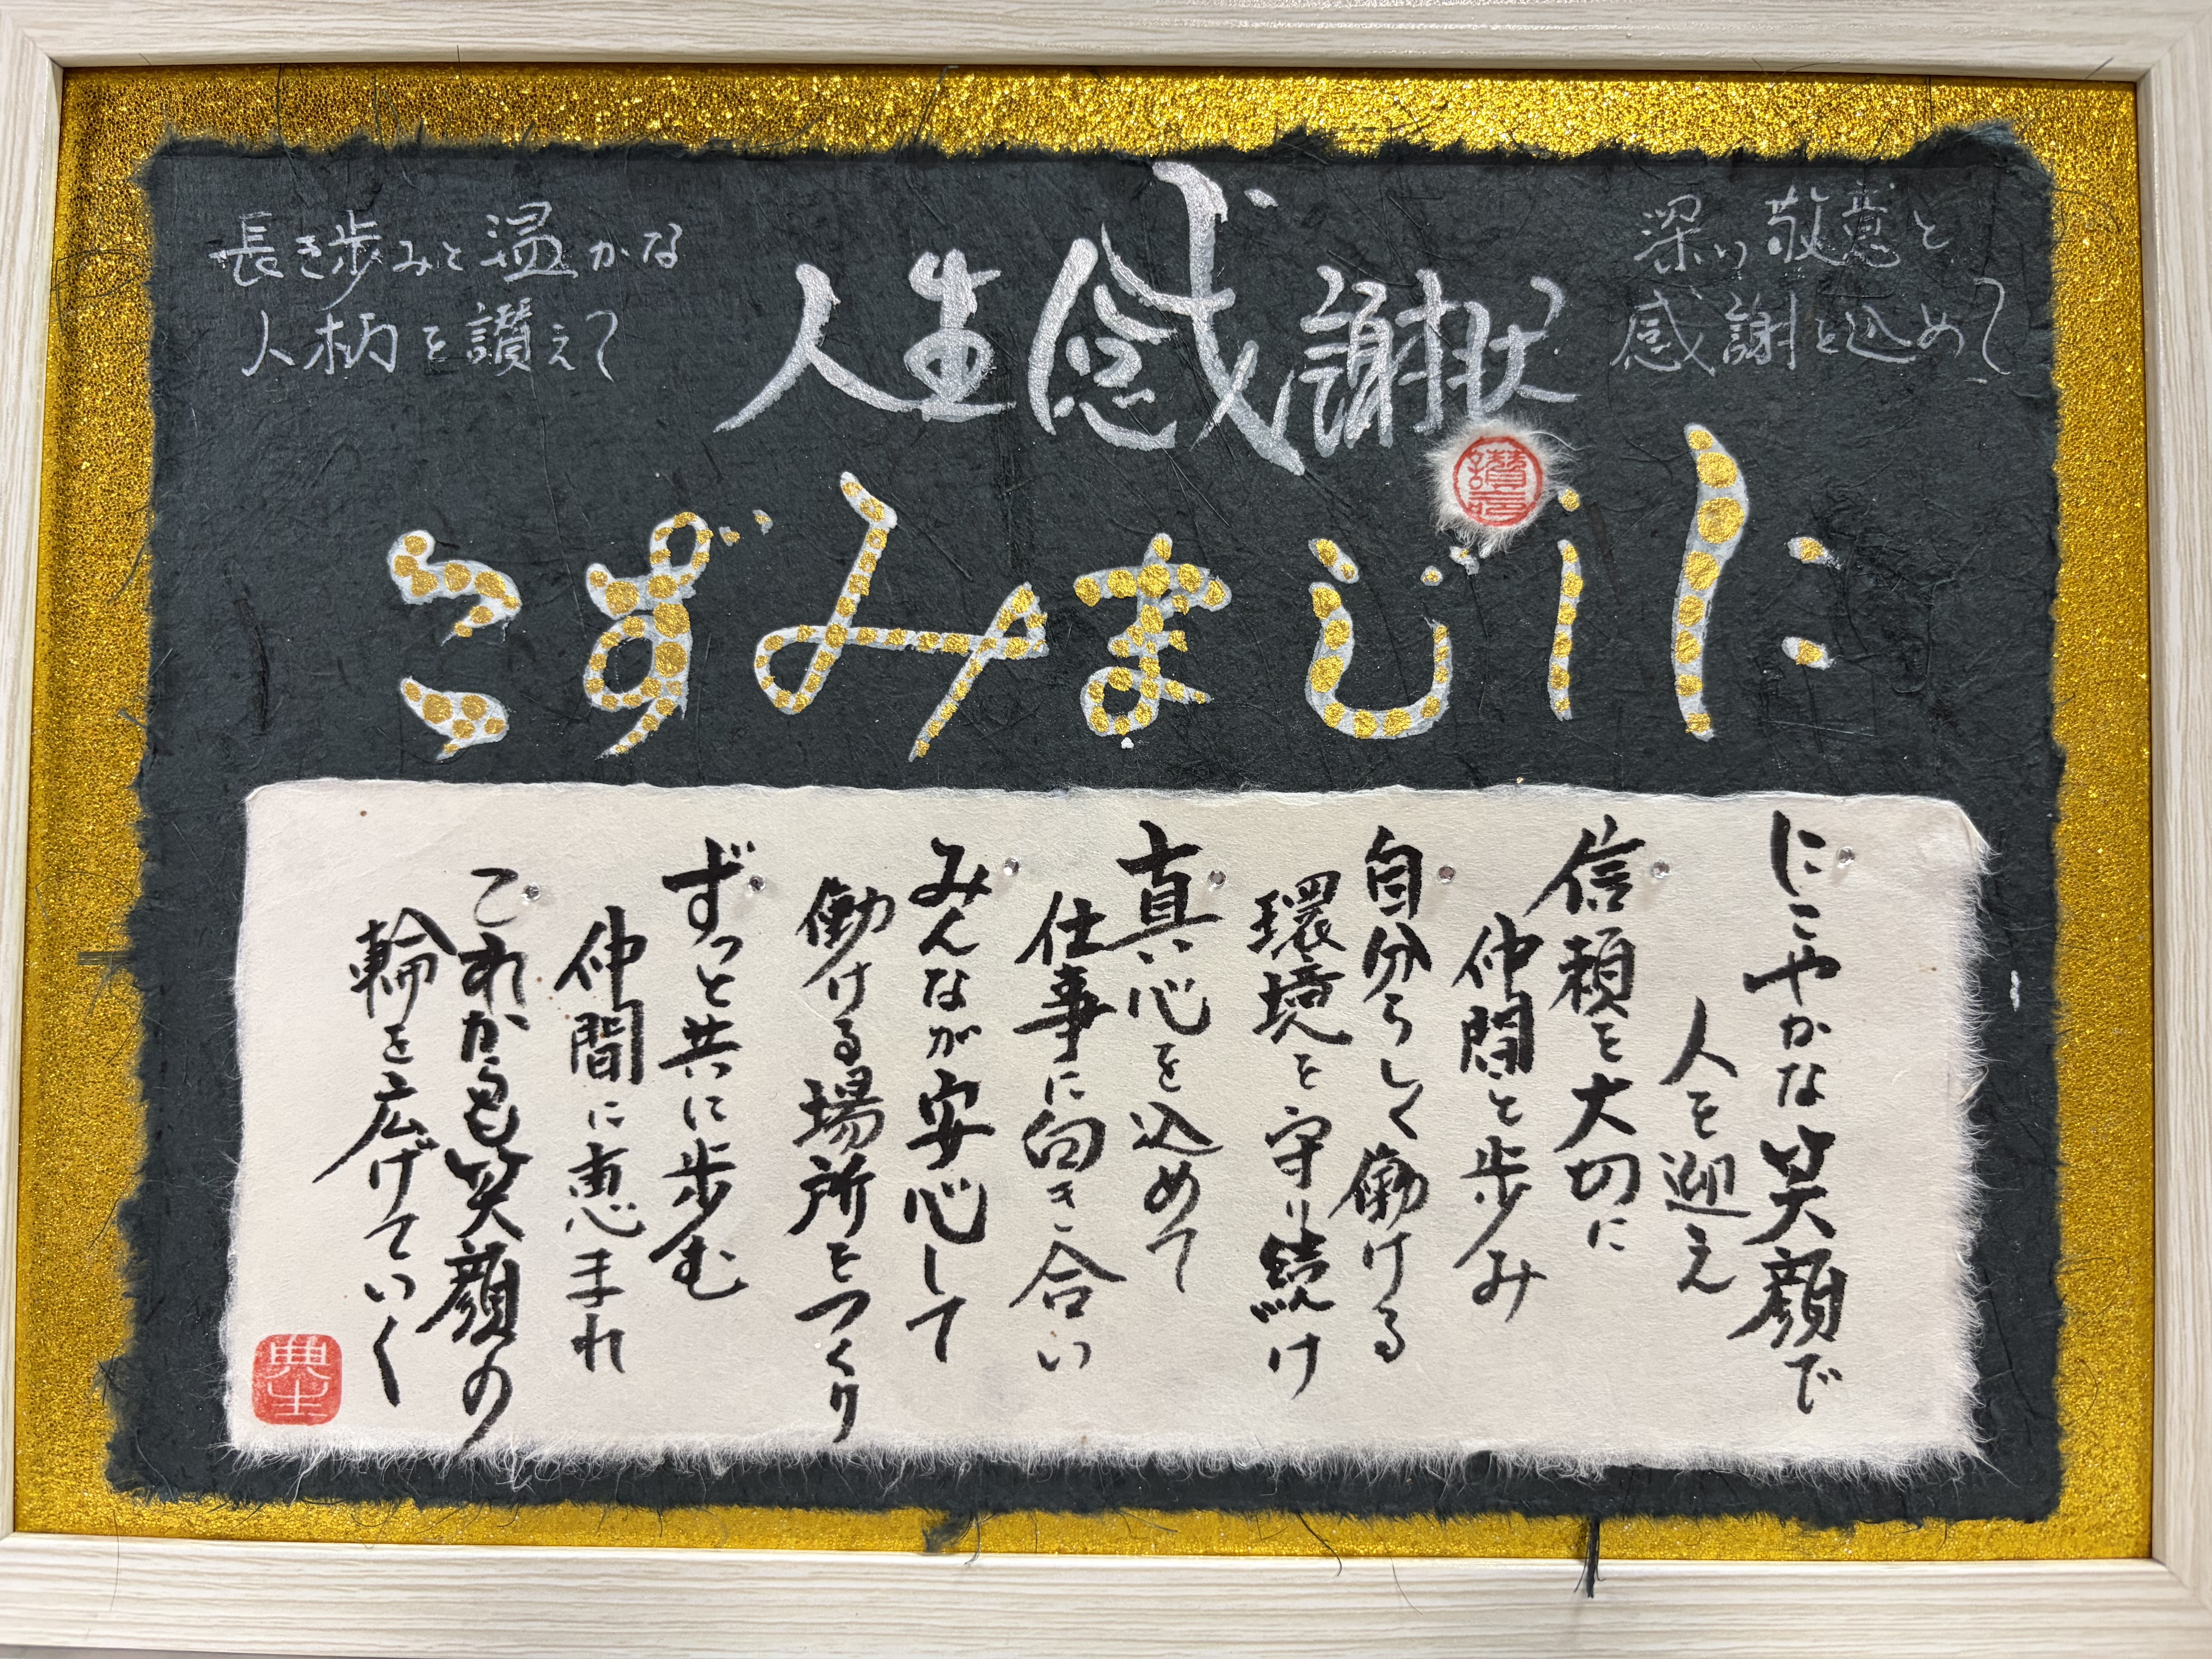 人生感謝状
深い敬意と
感謝を込めて
長き歩みと温かな
人柄を讃えて
にしじまみずこ
にこやかな笑顔で
人を迎え
信頼を大切に
仲間と歩み
自分らしく働ける
環境を守り続け
真心を込めて
仕事に向き合い
みんなが安心して
働ける場所をつくり
ずっと共に歩む
仲間に恵まれ
これからも笑顔の
輪を広げていく
典生